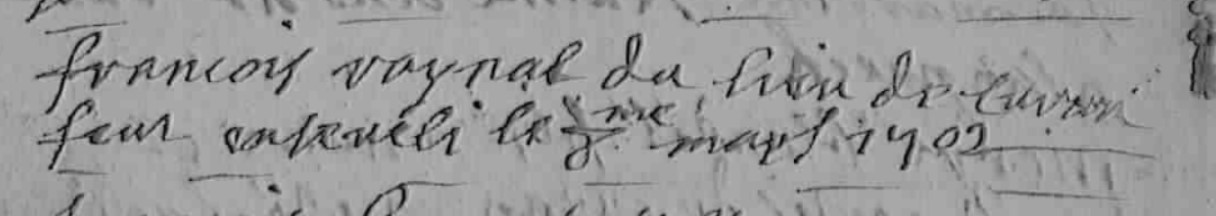 francois raynal du lieu de
feut enseveli le 8me mars 1702